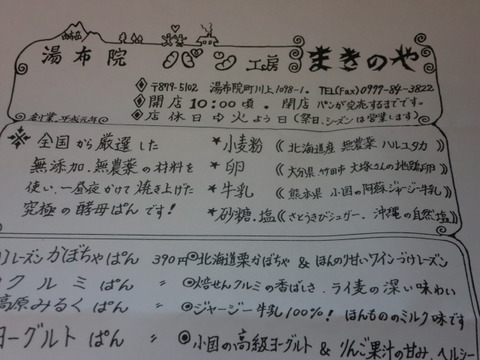 湯布院 パン工房 まきのや
〒879-5102 湯布院町川上1098-1. TEL(Fax)0977-84-3822
開店 10:00頃. 閉店 パンが完売するまでです.
創業. 平成元年
店休日 火よう日(祭日.シーズンは営業します)
全国から厳選した
無添加.無農薬の材料を
使い.一昼夜かけて焼き上げた
究極の酵母ぱんです!
*小麦粉 《北海道産 無農薬 ハルユタカ
*卵 《大分県 竹田市 大塚さんの地鶏卵》
*牛乳 《熊本県 小国の阿蘇ジャージー牛乳》
*砂糖.塩 《さとうきびシュガー. 沖縄の自然塩》
レーズンかぼちゃぱん 390円 ◎北海道栗かぼちゃ & ほんのり甘いワインづけレーズン
クルミぱん 〃 ◎焙せんクルミの香ばしさ. ライ麦の深い味わい
高原みるくぱん 〃 ◎ジャージー牛乳100%! ほんもののミルク味です
ヨーグルトぱん 〃 ◎小国の高級ヨーグルト & りんご果汁の甘み. ヘルシー